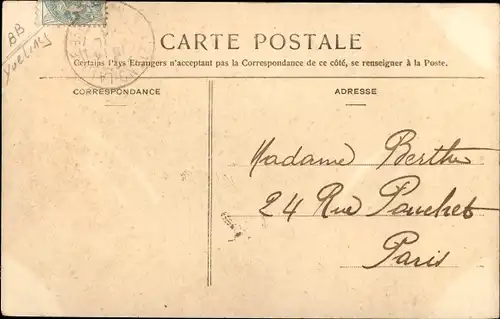 BB
Yvelines
CARTE POSTALE
Certains Pays Etrangers n'acceptant pas la Correspondance de ce côté, se renseigner à la Poste.
CORRESPONDANCE
ADRESSE
Madame Berthe
24 Rue Pouchet
Paris